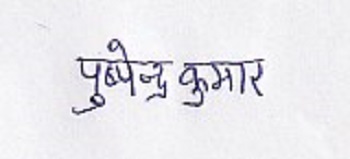 पुष्पेन्द्र कुमार